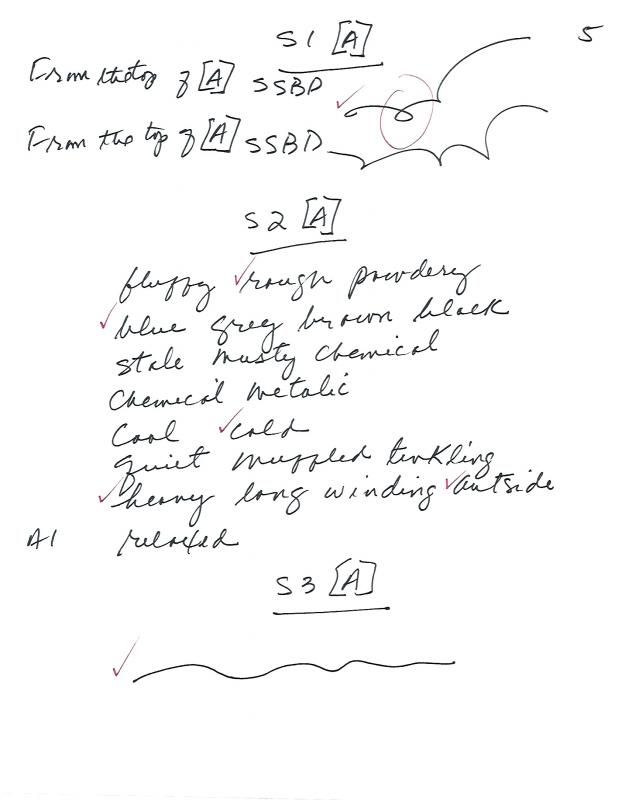 S1 [A]
5
From the top of [A] SSBD
From the top of [A] SSBD
S2 [A]
fluffy rough powdery
blue grey brown black
stale musty chemical
chemical metalic
cool cold
quiet muffled tinkling
heavy long winding outside
AI relaxed
S3 [A]